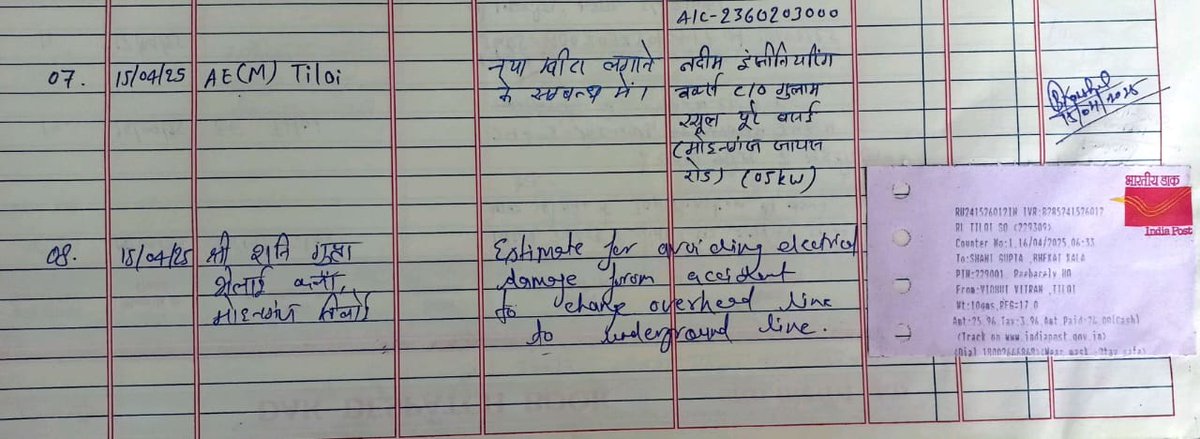 A/C-2360203000
07. 15/04/25 AE(M) Tiloi
नया मीटर लगाने
के सम्बन्ध में।
नदीम इंजीनियरिंग
वर्क्स C/O गुलाम
रसूल पूरे
(मोहनगंज जायस
रोड) (05kW)
15/04/2025
08. 15/04/25 श्री शनि गुप्ता
मोहनगंज तिलोई
Estimate for avoiding electrical
damage from accident
to change overhead line
to underground line.
भारतीय डाक
India Post
RU241526012IN IVR:8285241526012
RL TILOI SO (229309)
Counter No:1,16/04/2025,06:33
To:SHANI GUPTA ,BHEKAI KALA
PIN:229001, Raebarely HO
From:VIDHUT VITRAN ,TILOI
Wt:10gms,REG=17.0
Amt:25.96,Tax:3.96,Amt Paid:26.00(Cash)
(Track on www.indiapost.gov.in)
(Dial 18002666868) (Wear mask, Stay safe)